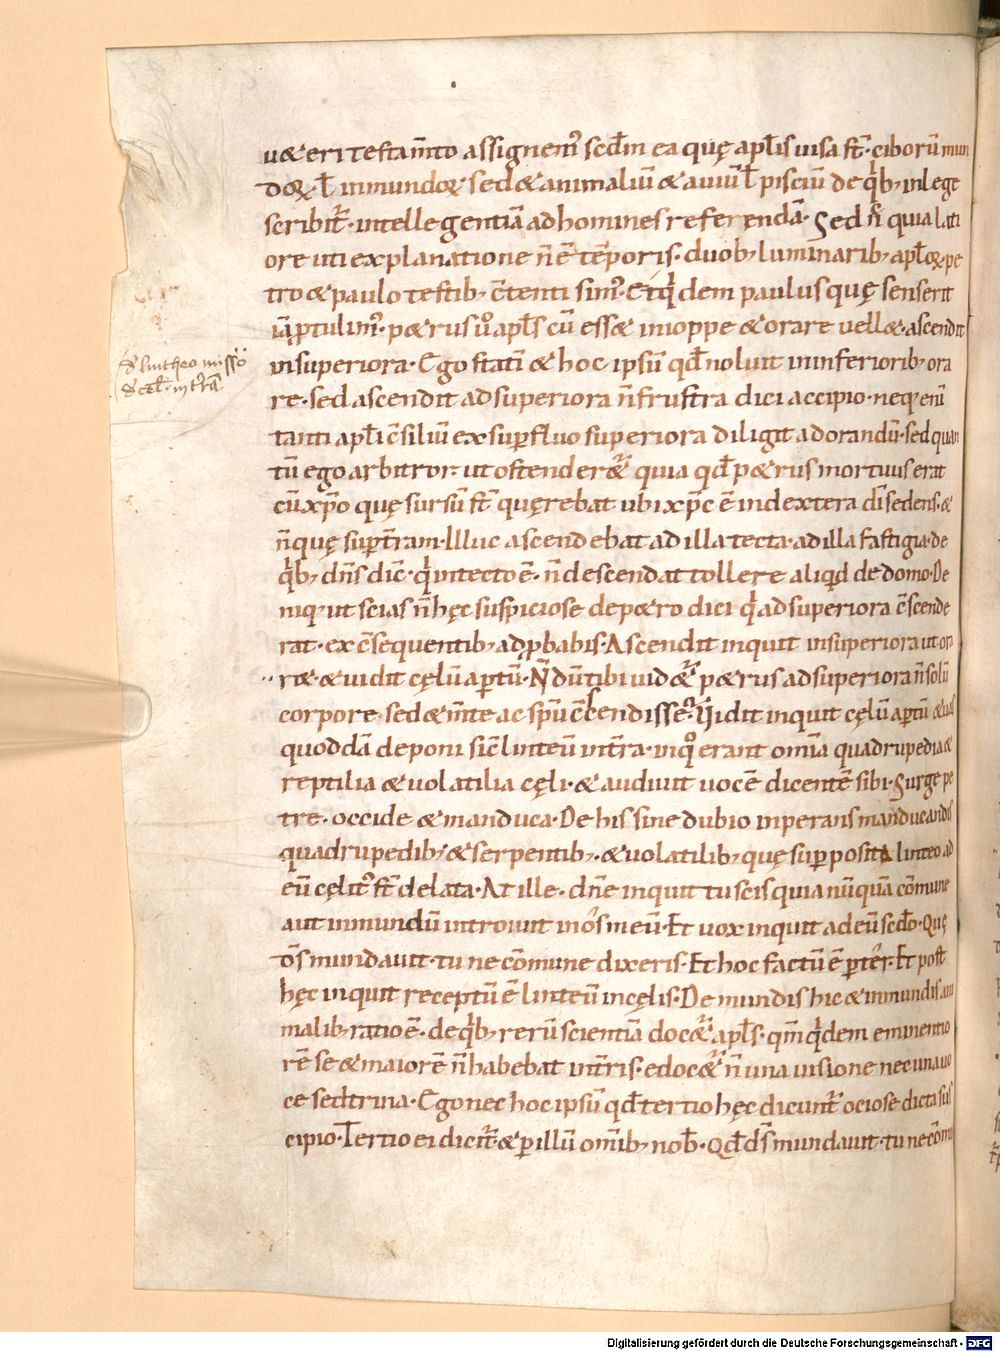 u&eri testam̅to assignem᷒ scd̅m ea quę apl̅is uisa st̅· ciborū mun
doꝝ· l̅ inmundoꝝ· sed & animaliū & auiū l̅ pisciū de qͥb; in lege
scribit᷒· intellegentiā ad homines referendā· Sed n̅ quia lati
ore uti explanatione n̅ ē tēporis· duob; luminarib; apl̅oꝝ pe
tro & paulo testib; c̅tenti sim᷒· Et qͥdem paulus quę senserit
iā ptulim᷒· p&rus ů apl̅s cū ess& in ioppe & orare uell&· ascendit
in superiora· Ego statī & hoc ipsū qd̅ noluit in inferiorib; ora
re· sed ascendit ad superiora n̅ frustra dici accipio· neq; enī
tanti apl̅i c̅siliū ex supfluo superiora diligit ad orandū· sed quan
tū ego arbitror ut ostender&᷒ quia qd̅ p&rus mortuus erat
cū xp̅o quę sursū st̅ quęrebat ubi xp̅c ē in dextera dī sedens· &
n̅ quę sup tr̅am· Illuc ascendebat ad illa tecta· ad illa fastigia· de
qͥb; dn̅s dic̅· qͥ in tecto ē· n̅ descendat tollere aliqͥd de domo· De
niq; ut scias n̅ hęc suspiciose de p&ro dici qͥ ad superiora c̅scende
rat· ex c̅sequentib; adpbabis· Ascendit inquit in superiora ut ora
r&· & uidit cęlū aptū· N̅ dū tibi uid&᷒ p&rus ad superiora n̅ solū
corpore· sed & m̅te ac sp̅u c̅scendisse· Uidit inquit cęlū aptū & uas
quoddā deponi sic̅ linteū in tr̅a· in qͦ erant omīa quadrupedia &
reptilia & uolatilia cęli· & audiuit uocē dicentē sibi· Surge pe
tre· occide & manduca· De his sine dubio inperans manducandis
quadrupedib; & serpentib;· & uolatilib; quę sup posita linteo ad
eū cęlit᷒ st̅ delata· At ille· dn̅e inquit tu scis quia nūquā cōmune
aut inmundū introiuit in ōs meū· Et uox inquit ad eū scd̅o· Quę
d̅s mundauit· tu ne cōmune dixeris· Et hoc factū ē p ter̅· Et post
hęc inquit receptū ē linteū in cęlis· De mundis hic & inmundis ani
malib; ratio ē· de qͥb; rerū scientiā doc&᷒ apl̅s· qm̅ qͥdem eminentio
rē se & maiorē n̅ habebat in tr̅is· edoc&᷒ n̅ una uisione nec una uo
ce sed trina· Ego nec hoc ipsū qd̅ tertio hęc dicunt᷒ ociose dicta sus
cipio· Tertio ei dicit᷒ & p illū omīb; nob̅· Qd̅ d̅s mundauit· tu ne cōmu